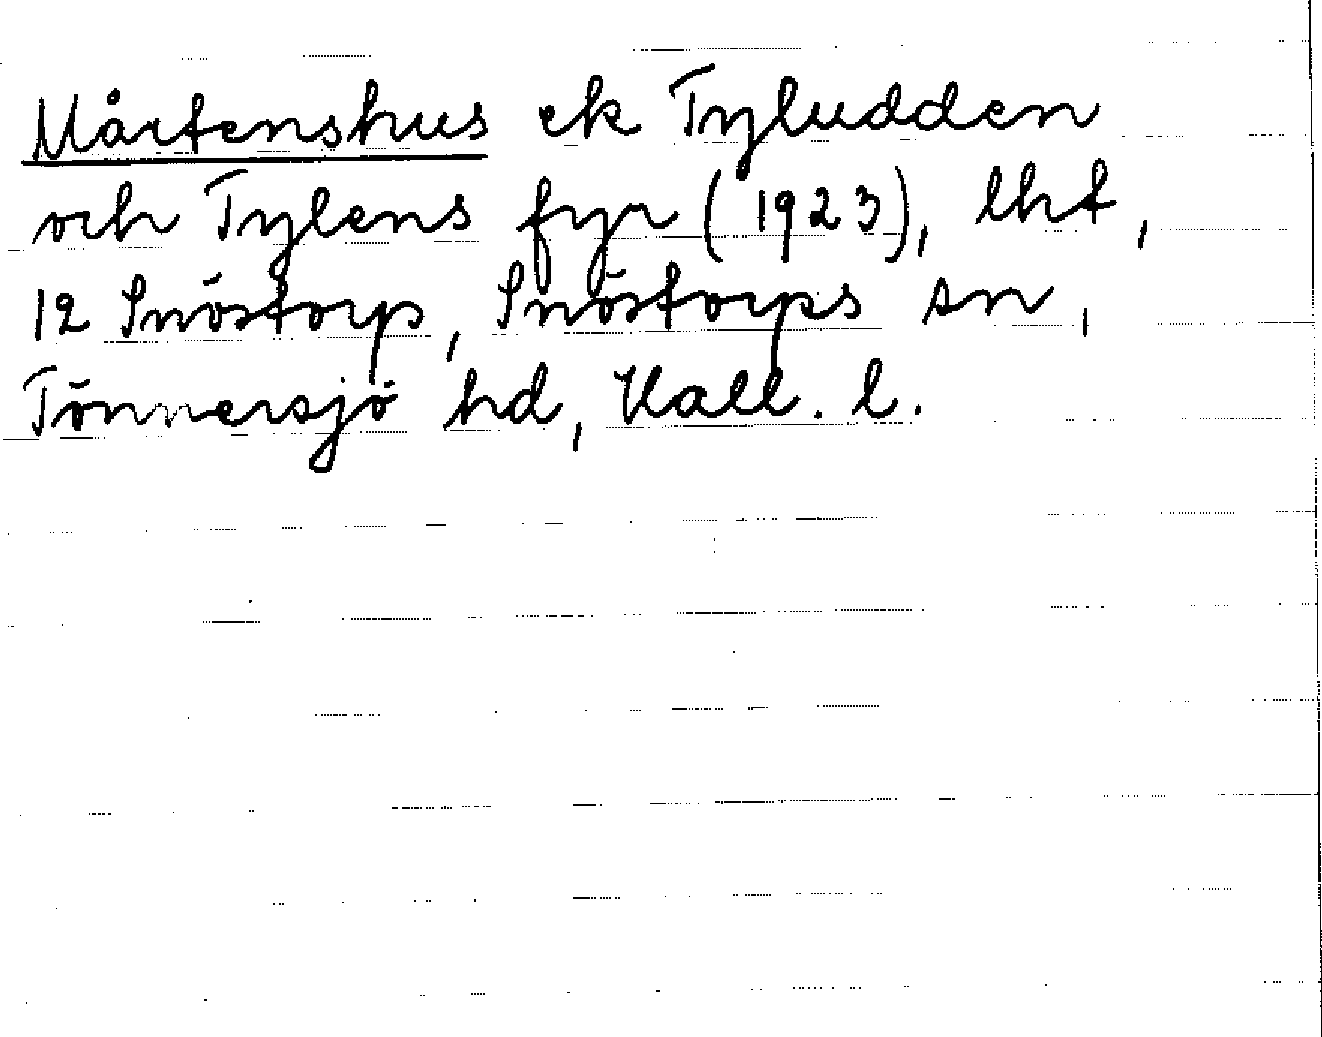 Mårtenshus ek Tyludden
och Tylens fyr (1923), lht,
12 Snöstorp, Snöstorps sn,
Tönnersjö hd, Hall. l.